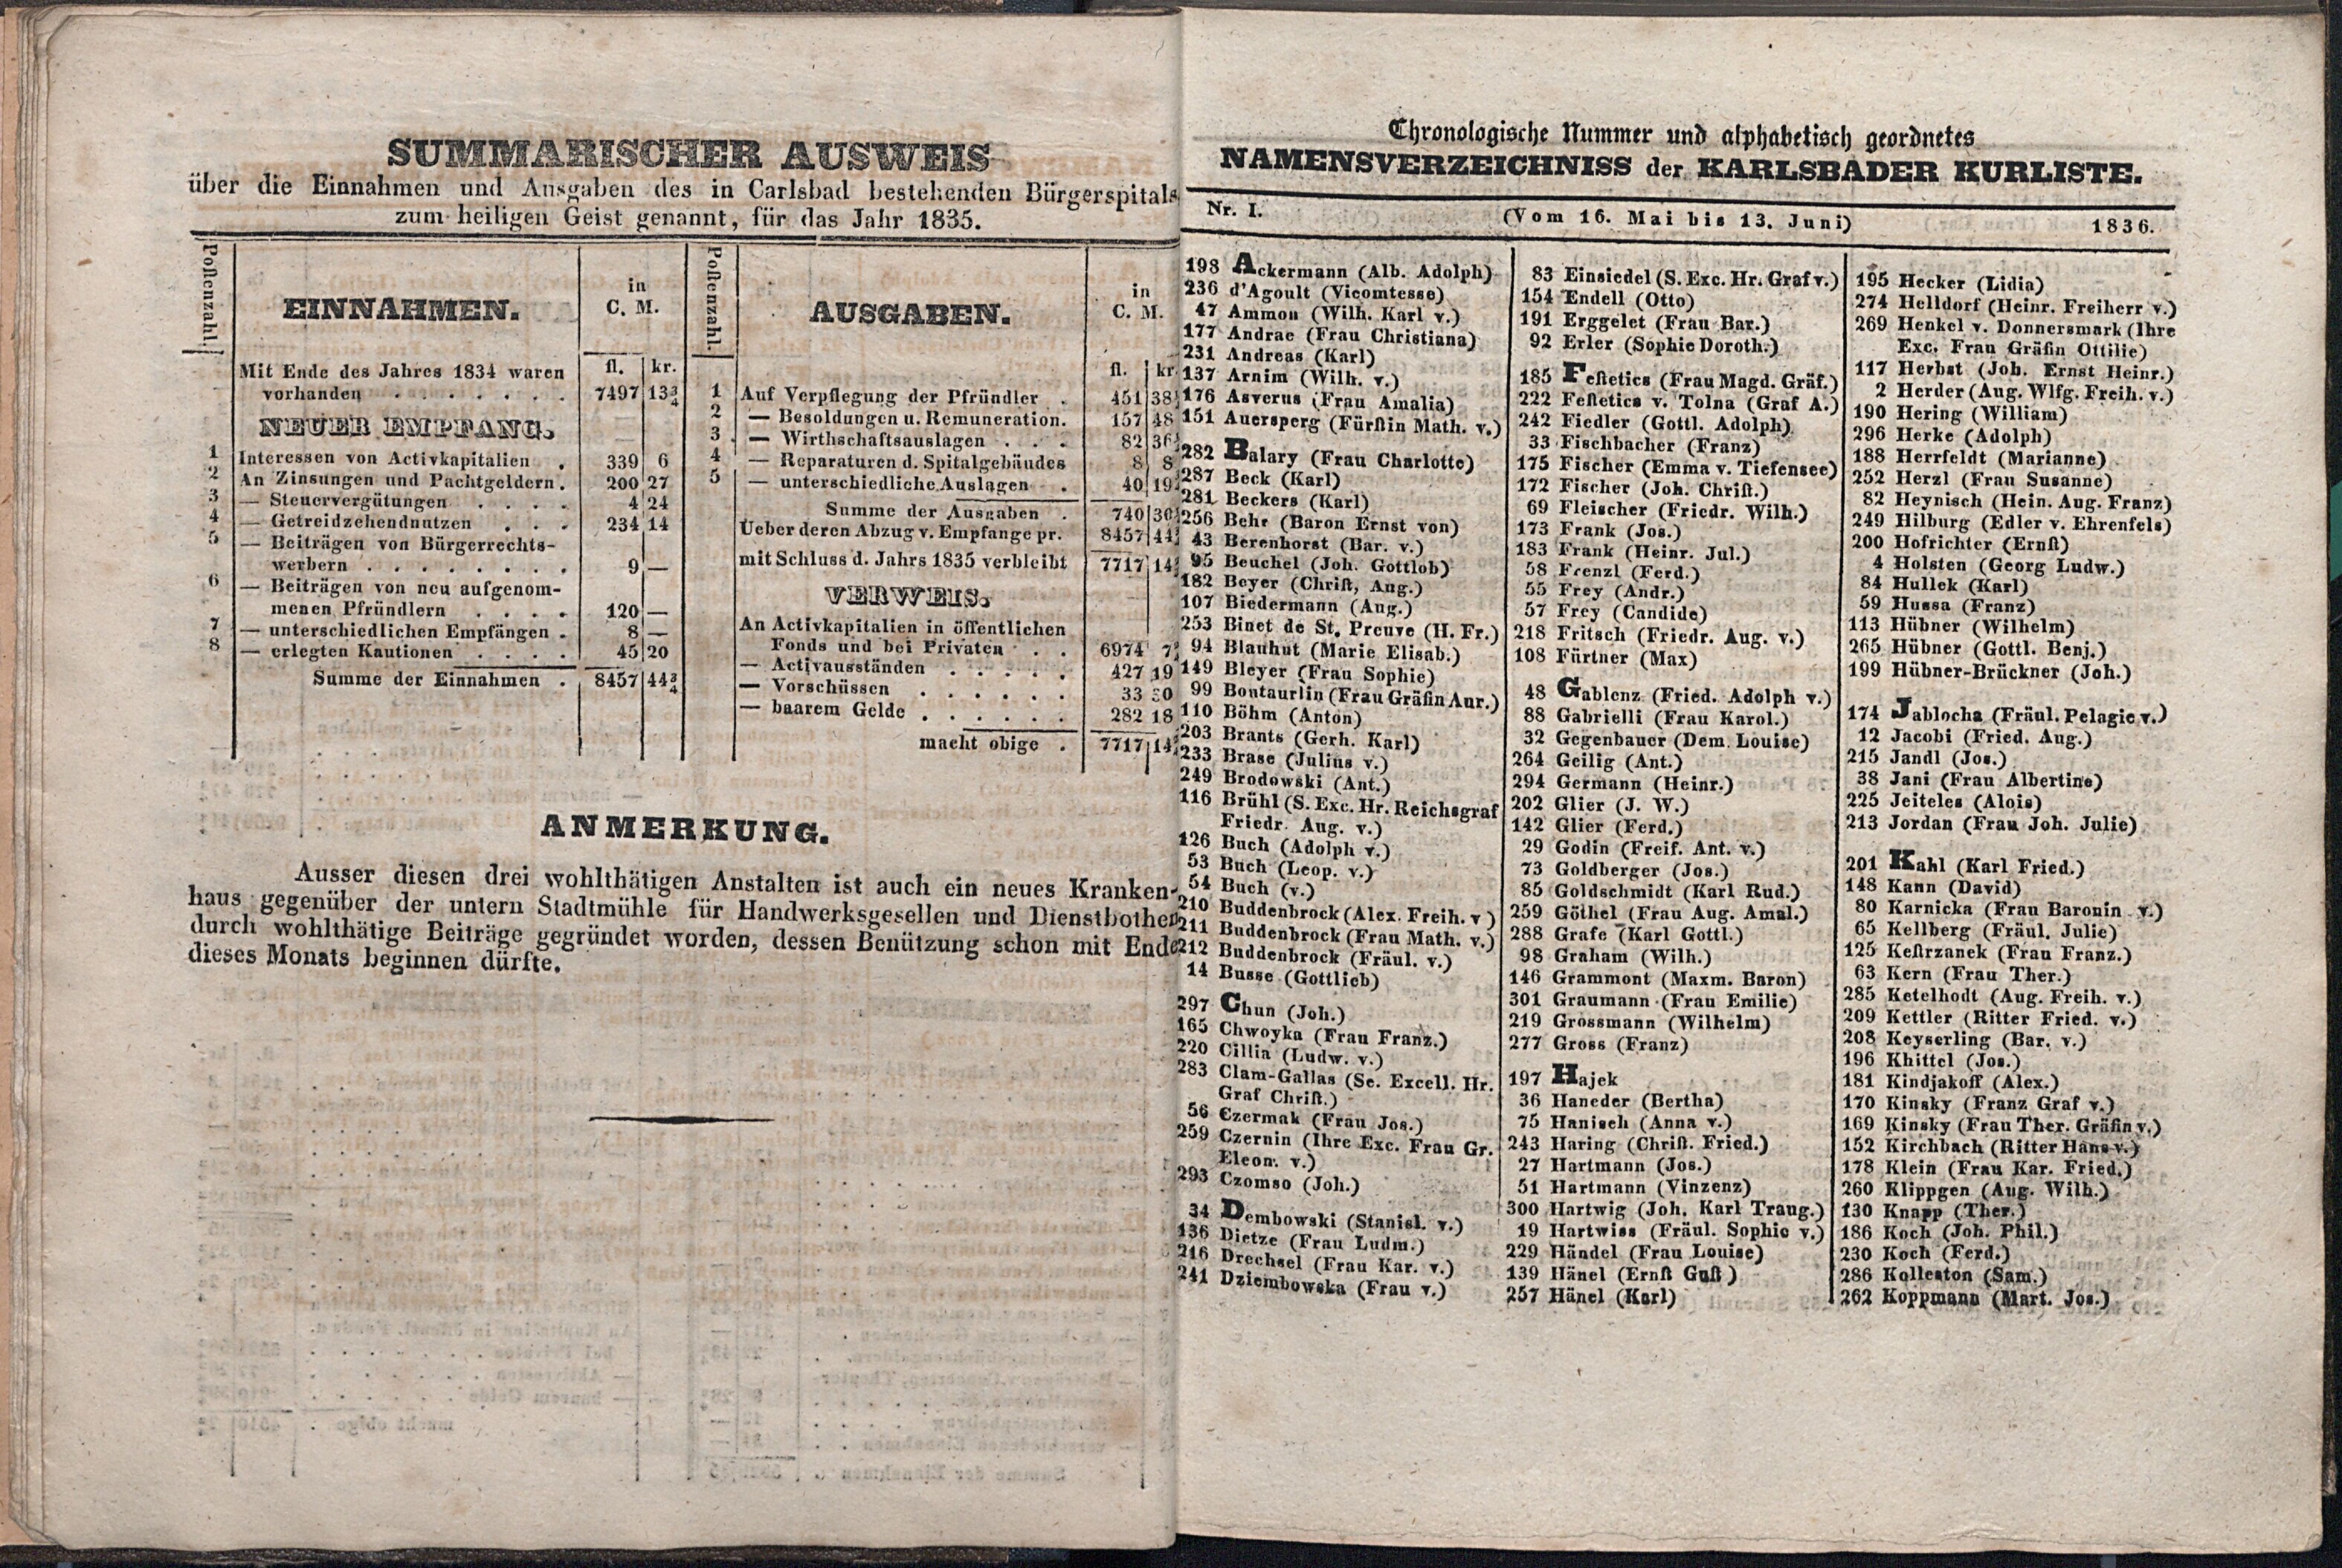 SUMMARISCHER AUSWEIS
über die Einnahmen und Ausgaben des in Carlsbad bestehenden Bürgerspitals
zum heiligen Geist genannt, für das Jahr 1835.
Poſtenzahl.
EINNAHMEN.
in
C. M.
fl. kr.
Mit Ende des Jahres 1834 waren
vorhanden . . . . . . . 7497 13¾
NEUER EMPFANG.
1 Interessen von Activkapitalien . 339 6
2 An Zinsungen und Pachtgeldern. 200 27
3 — Steuervergütungen . . . . 4 24
4 — Getreidzehendnutzen . . . 234 14
5 — Beiträgen von Bürgerrechts-
werbern . . . . . . . . 9 —
6 — Beiträgen von neu aufgenom-
menen Pfründlern . . . . 120 —
7 — unterschiedlichen Empfängen . 8 —
8 — erlegten Kautionen . . . . 45 20
Summe der Einnahmen . 8457 44¾
Poſtenzahl.
AUSGABEN.
in
C. M.
fl. kr.
1 Auf Verpflegung der Pfründler . 451 38
2 — Besoldungen u. Remuneration. 157 48
3 — Wirthschaftsauslagen . . . 82 36
4 — Reparaturen d. Spitalgebäudes 8 8
5 — unterschiedliche Auslagen . 40 19
Summe der Ausgaben . 740 30
Ueber deren Abzug v. Empfange pr. 8457 44
mit Schluss d. Jahrs 1835 verbleibt 7717 14
VERWEIS.
An Activkapitalien in öffentlichen
Fonds und bei Privaten . . 6974 7
— Activausständen . . . . . 427 19
— Vorschüssen . . . . . . 33 30
— baarem Gelde . . . . . . 282 18
macht obige . 7717 14
ANMERKUNG.
Ausser diesen drei wohlthätigen Anstalten ist auch ein neues Kranken-
haus gegenüber der untern Stadtmühle für Handwerksgesellen und Dienstbothen
durch wohlthätige Beiträge gegründet worden, dessen Benützung schon mit Ende
dieses Monats beginnen dürfte.
Chronologische Nummer und alphabetisch geordnetes
NAMENSVERZEICHNISS der KARLSBADER KURLISTE.
Nr. I. (Vom 16. Mai bis 13. Juni) 1836.
198 Ackermann (Alb. Adolph)
236 d'Agoult (Vicomtesse)
47 Ammon (Wilh. Karl v.)
177 Andrae (Frau Christiana)
231 Andreas (Karl)
137 Arnim (Wilh. v.)
176 Asverus (Frau Amalia)
151 Auersperg (Fürſtin Math. v.)
282 Balary (Frau Charlotte)
287 Beck (Karl)
281 Beckers (Karl)
256 Behr (Baron Ernst von)
43 Berenhorst (Bar. v.)
95 Beuchel (Joh. Gottlob)
182 Beyer (Chriſt. Aug.)
107 Biedermann (Aug.)
253 Binet de St. Preuve (H. Fr.)
94 Blauhut (Marie Elisab.)
149 Bleyer (Frau Sophie)
99 Bontaurlin (Frau Gräfin Aur.)
110 Böhm (Anton)
203 Brants (Gerh. Karl)
233 Brase (Julius v.)
249 Brodowski (Ant.)
116 Brühl (S. Exc. Hr. Reichsgraf
Friedr. Aug. v.)
126 Buch (Adolph v.)
53 Buch (Leop. v.)
54 Buch (v.)
210 Buddenbrock (Alex. Freih. v)
211 Buddenbrock (Frau Math. v.)
212 Buddenbrock (Fräul. v.)
14 Busse (Gottlieb)
297 Chun (Joh.)
165 Chwoyka (Frau Franz.)
220 Cillia (Ludw. v.)
283 Clam-Gallas (Se. Excell. Hr.
Graf Chriſt.)
56 Czermak (Frau Jos.)
259 Czernin (Ihre Exc. Frau Gr.
Eleon. v.)
293 Czomso (Joh.)
34 Dembowski (Stanisl. v.)
136 Dietze (Frau Ludm.)
216 Drechsel (Frau Kar. v.)
241 Dziembowska (Frau v.)
83 Einsiedel (S. Exc. Hr. Graf v.)
154 Endell (Otto)
191 Erggelet (Frau Bar.)
92 Erler (Sophie Doroth.)
185 Feſtetics (Frau Magd. Gräf.)
222 Feſtetics v. Tolna (Graf A.)
242 Fiedler (Gottl. Adolph)
33 Fischbacher (Franz)
175 Fischer (Emma v. Tiefensee)
172 Fischer (Joh. Chriſt.)
69 Fleischer (Friedr. Wilh.)
173 Frank (Jos.)
183 Frank (Heinr. Jul.)
58 Frenzl (Ferd.)
55 Frey (Andr.)
57 Frey (Candide)
218 Fritsch (Friedr. Aug. v.)
108 Fürtner (Max)
48 Gablenz (Fried. Adolph v.)
88 Gabrielli (Frau Karol.)
32 Gegenbauer (Dem. Louise)
264 Geilig (Ant.)
294 Germann (Heinr.)
202 Glier (J. W.)
142 Glier (Ferd.)
29 Godin (Freif. Ant. v.)
73 Goldberger (Jos.)
85 Goldschmidt (Karl Rud.)
259 Göthel (Frau Aug. Amal.)
288 Grafe (Karl Gottl.)
98 Graham (Wilh.)
146 Grammont (Maxm. Baron)
301 Graumann (Frau Emilie)
219 Grossmann (Wilhelm)
277 Gross (Franz)
197 Hajek
36 Haneder (Bertha)
75 Hanisch (Anna v.)
243 Haring (Chriſt. Fried.)
27 Hartmann (Jos.)
51 Hartmann (Vinzenz)
300 Hartwig (Joh. Karl Traug.)
19 Hartwiss (Fräul. Sophie v.)
229 Händel (Frau Louise)
139 Hänel (Ernſt Guſt)
257 Hänel (Karl)
195 Hecker (Lidia)
274 Helldorf (Heinr. Freiherr v.)
269 Henkel v. Donnersmark (Ihre
Exc. Frau Gräfin Ottilie)
117 Herbst (Joh. Ernst Heinr.)
2 Herder (Aug. Wlfg. Freih. v.)
190 Hering (William)
296 Herke (Adolph)
188 Herrfeldt (Marianne)
252 Herzl (Frau Susanne)
82 Heynisch (Hein. Aug. Franz)
249 Hilburg (Edler v. Ehrenfels)
200 Hofrichter (Ernſt)
4 Holsten (Georg Ludw.)
84 Hullek (Karl)
59 Hussa (Franz)
113 Hübner (Wilhelm)
265 Hübner (Gottl. Benj.)
199 Hübner-Brückner (Joh.)
174 Jablocha (Fräul. Pelagie v.)
12 Jacobi (Fried. Aug.)
215 Jandl (Jos.)
38 Jani (Frau Albertine)
225 Jeiteles (Alois)
213 Jordan (Frau Joh. Julie)
201 Kahl (Karl Fried.)
148 Kann (David)
80 Karnicka (Frau Baronin v.)
65 Kellberg (Fräul. Julie)
125 Keſtrzanek (Frau Franz.)
63 Kern (Frau Ther.)
285 Ketelhodt (Aug. Freih. v.)
209 Kettler (Ritter Fried. v.)
208 Keyserling (Bar. v.)
196 Khittel (Jos.)
181 Kindjakoff (Alex.)
170 Kinsky (Franz Graf v.)
169 Kinsky (Frau Ther. Gräfin v.)
152 Kirchbach (Ritter Hans v.)
178 Klein (Frau Kar. Fried.)
260 Klippgen (Aug. Wilh.)
130 Knapp (Ther.)
186 Koch (Joh. Phil.)
230 Koch (Ferd.)
286 Kolleston (Sam.)
262 Koppmann (Mart. Jos.)